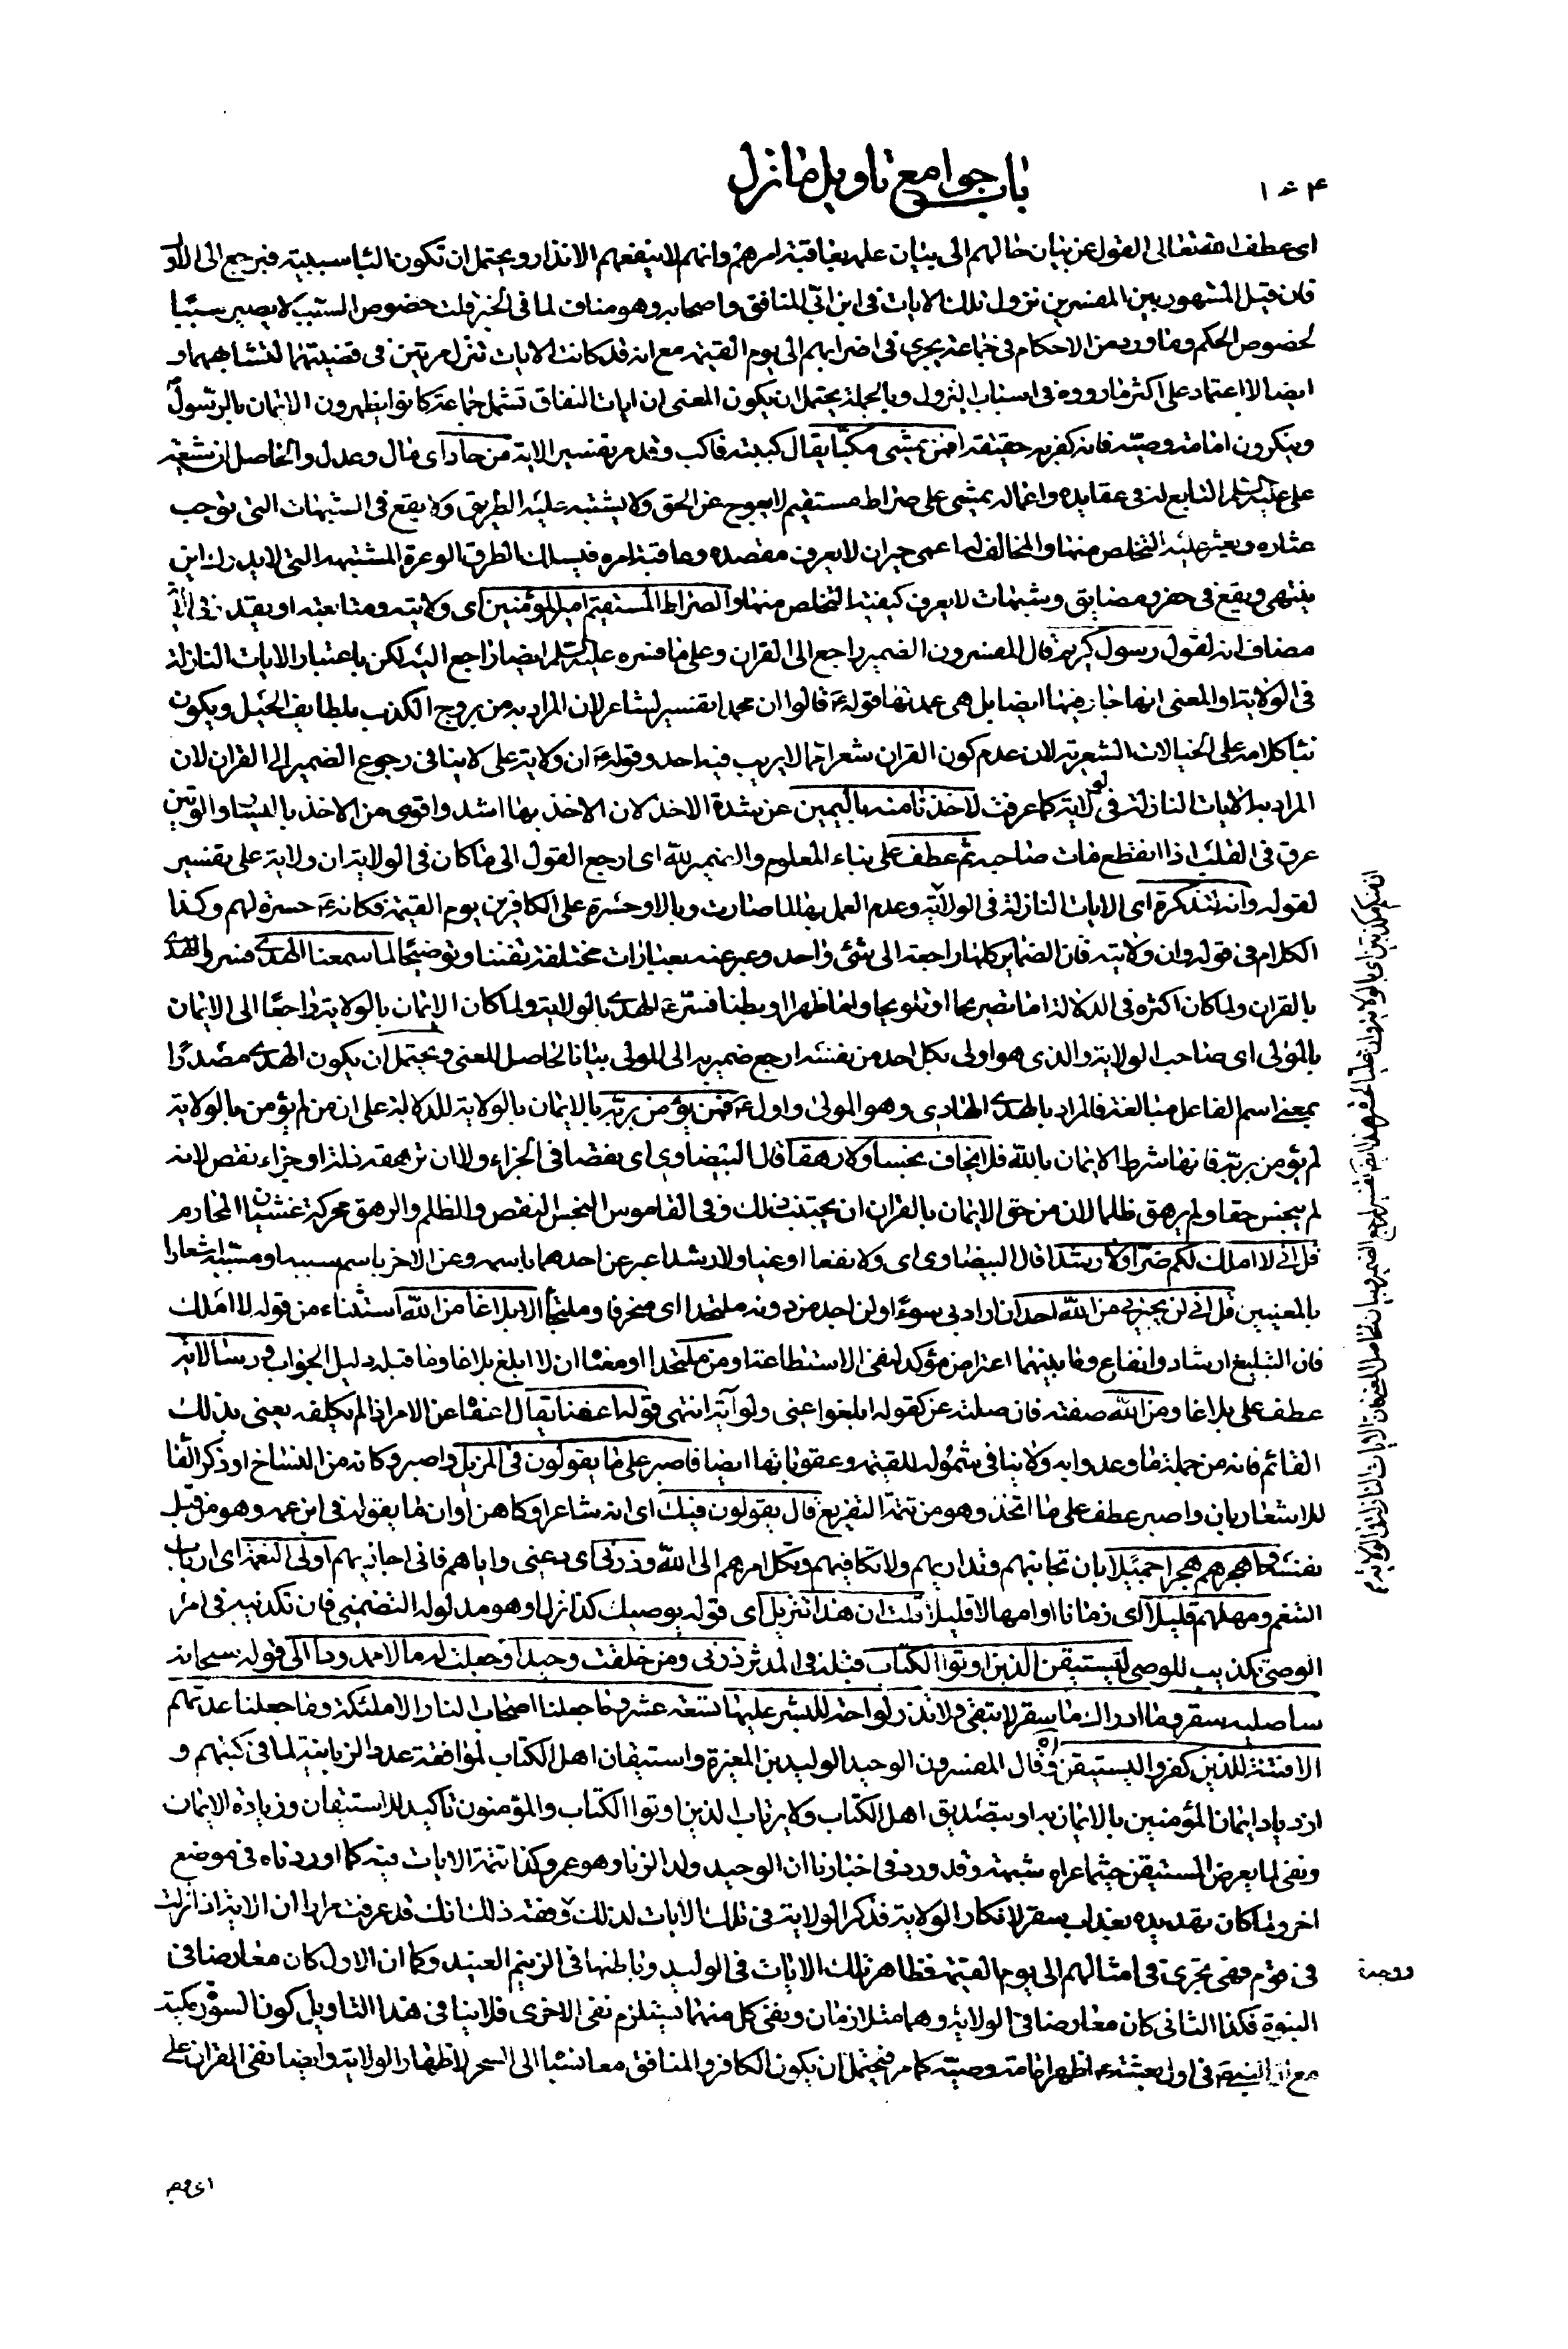 باب جوامع تاويل ما نزل
اى عطف الله تعالى القول عن بيان حالهم الى بيان علمه بعاقبة امرهم وانهم لا ينفعهم الانذار ويحتمل ان تكون الباء سببية فيرجع الى الاول
فان قيل المشهور بين المفسرين نزول تلك الايات فى ابن ابى المنافق واصحابه وهو مناف لما فى الخبر قلت خصوص السبب لا يصير سببا
لخصوص الحكم وما ورد من الاحكام فى جماعة يجرى فى اضرابهم الى يوم القيمة مع انه قد كانت الايات تنزل مرتين فى قضيتين لتشابههما و
ايضا لا اعتماد على اكثر ما رووه فى اسباب النزول وبالجملة يحتمل ان يكون المعنى ان ايات النفاق تشمل جماعة كانوا يظهرون الايمان بالرسول
وينكرون امامة وصيه فانه كفر به حقيقة افمن يمشى مكبا يقال كببته فاكب وقد مر تفسير الاية من حاد اى مال وعدل والحاصل ان شيعة
على عليه السلم التابع له فى عقايده واعماله يمشى على صراط مستقيم لا يعوج عن الحق ولا يشتبه عليه الطريق ولا يقع فى الشبهات التى توجب
عثاره ويعثر عليه التخلص منها والمخالف له اعمى حيران لا يعرف مقصده وعاقبة امره فيسلك الطرق الوعرة المشتبهة التى لا يدرى اين
ينتهى ويقع فى حفر ومضايق وشبهات لا يعرف كيفية التخلص منها والصراط المستقيم امير المؤمنين اى ولايته ومتابعته او يقدر فى الاية
مضاف انه لقول رسول كريم قال المفسرون الضمير راجع الى القران وعلى ما فسره عليه السلم ايضا راجع اليه لكن باعتبار الايات النازلة
فى الولاية او المعنى انها جارية فيها ايضا بل هى عمدتها قوله ع قالوا ان محمدا تفسير لشاعر لان المراد به من يروج الكذب بلطايف الحيل ويكون
بناء كلامه على الخيالات الشعرية لان عدم كون القران شعرا مما لا يريب فيه احد وقوله ع ان ولاية على لا ينافى رجوع الضمير الى القران لان
المراد به الايات النازلة فى الولاية كما عرفت لاخذنا منه باليمين عن شدة الاخذ لان الاخذ بها اشد واقوى من الاخذ باليسار والوتين
عرق فى القلب اذا انقطع مات صاحبه ثم عطف على بناء المعلوم والضمير لله اى ارجع القول الى ما كان فى الولاية ان ولاية على تفسير
لقوله وانه لتذكرة اى الايات النازلة فى الولاية وعدم العمل بها لما صارت وبالا وحسرة على الكافرين يوم القيمة فكانه ع حسرة لهم وكذا
الكلام فى قوله وان ولايته فان الضماير كلها راجعة الى شئ واحد وعبر عنه بعبارات مختلفة تفننا وتوضيحا لما سمعنا الهدى فسروا الهدى
بالقران ولما كان اكثره فى الدلالة اما تصريحا او تلويحا واما ظهرا او بطنا فسر ع الهدى بالولاية ولما كان الايمان بالولاية راجعا الى الايمان
بالمولى اى صاحب الولاية والذى هو اولى بكل احد من نفسه ارجع ضمير به الى المولى بيانا لحاصل المعنى ويحتمل ان يكون الهدى مصدرا
بمعنى اسم الفاعل مبالغة فالمراد بالهدى الهادى وهو المولى واول ع فمن يؤمن بربه بالايمان بالولاية للدلالة على ان من لم يؤمن بالولاية
لم يؤمن بربه فانها شرط الايمان بالله فلا يخاف بخسا ولا رهقا قال البيضاوى اى نقصا فى الجزاء ولا ان ترهقه ذلة او جزاء نقص لانه
لم يبخس حقا ولم يرهق ظلما لان من حق الايمان بالقران ان يجتنب ذلك وفى القاموس البخس النقص والظلم والرهق محركة غشيان المحارم
قل انى لا املك لكم ضرا ولا رشدا قال البيضاوى اى ولا نفعا او غيا ولا رشدا عبر عن احدهما باسمه وعن الاخر باسم سببه او مسببه اشعارا
بالمعنيين قل انى لن يجيرنى من الله احد ان ارادنى بسوء ولن اجد من دونه ملتحدا اى منحرفا وملتجأ الا بلاغا من الله استثناء من قوله لا املك
فان التبليغ ارشاد وانفاع وما بينهما اعتراض مؤكد لنفى الاستطاعة او من ملتحدا او معناه ان لا ابلغ بلاغا وما قبله دليل الجواب ورسالاته
عطف على بلاغا ومن الله صفته فان صلته عن كقوله ابلغوا عنى ولو آية انتهى قوله اعفنا يقال اعفاه عن الامر اذا لم يكلفه يعنى بذلك
القائم فانه من جملة ما وعدوا به ولا ينافى شموله للقيمة وعقوباتها ايضا فاصبر على ما يقولون فى المزمل واصبر وكانه من النساخ او ذكر الفاء
للاشعار بان واصبر عطف على ما اتخذ وهو من تتمة التفريع قال يقولون فيك اى انه شاعر او كاهن او ان ما يقوله فى ابن عمه وهو من قبل
نفسه واهجرهم هجرا جميلا بان تجانبهم وتداريهم ولا تكافيهم وتكل امرهم الى الله وذرنى اى دعنى واياهم فانى اجازيهم اولى النعمة اى ارباب
التنعم ومهلهم قليلا اى زمانا او امهالا قليلا قلت ان هذا تنزيل اى قوله بوصيك كذا نزل او هو مدلوله التضمنى فان تكذيبه فى امر
الوصى تكذيب للوصى ليستيقن الذين اوتوا الكتاب قبله فى المدثر ذرنى ومن خلقت وحيدا وجعلت له مالا ممدودا الى قوله سبحانه
ساصليه سقر وما ادراك ما سقر لا تبقى ولا تذر لواحة للبشر عليها تسعة عشر وما جعلنا اصحاب النار الا ملئكة وما جعلنا عدتهم
الا فتنة للذين كفروا ليستيقن اه وقال المفسرون الوحيد الوليد بن المغيرة واستيقان اهل الكتاب لموافقة عدد الزبانية لما فى كتبهم و
ازدياد ايمان المؤمنين بالايمان به او بتصديق اهل الكتاب ولا يرتاب الذين اوتوا الكتاب والمؤمنون تأكيد للاستيقان وزيادة الايمان
ونفى لما يعرض المستيقن حيثما عراه شبهة وقد ورد فى اخبارنا ان الوحيد ولد الزنا وهو عمر وكذا تتمة الايات فيه كما اوردناه فى موضع
اخر ولما كان تهديده بعذاب سقر لانكار الولاية فذكر الولاية فى تلك الايات لذلك وفقه ذلك انك قد عرفت مرارا ان الاية اذا نزلت
فى قوم فهى تجرى فى امثالهم الى يوم القيمة فظاهر تلك الايات فى الوليد وباطنها فى الزنيم العنيد وكما ان الاول كان معارضا فى
النبوة فكذا الثانى كان معارضا فى الولاية وهما متلازمان ونفى كل منهما يستلزم نفى الاخرى فلا ينافى هذا التاويل كون السورة مكية
مع ان النبى ص فى اول بعثته ع اظهر امامة وصيه كما مر فيحتمل ان يكون الكافر والمنافق معا نسبا الى السحر لاظهار الولاية وايضا نفى القران على